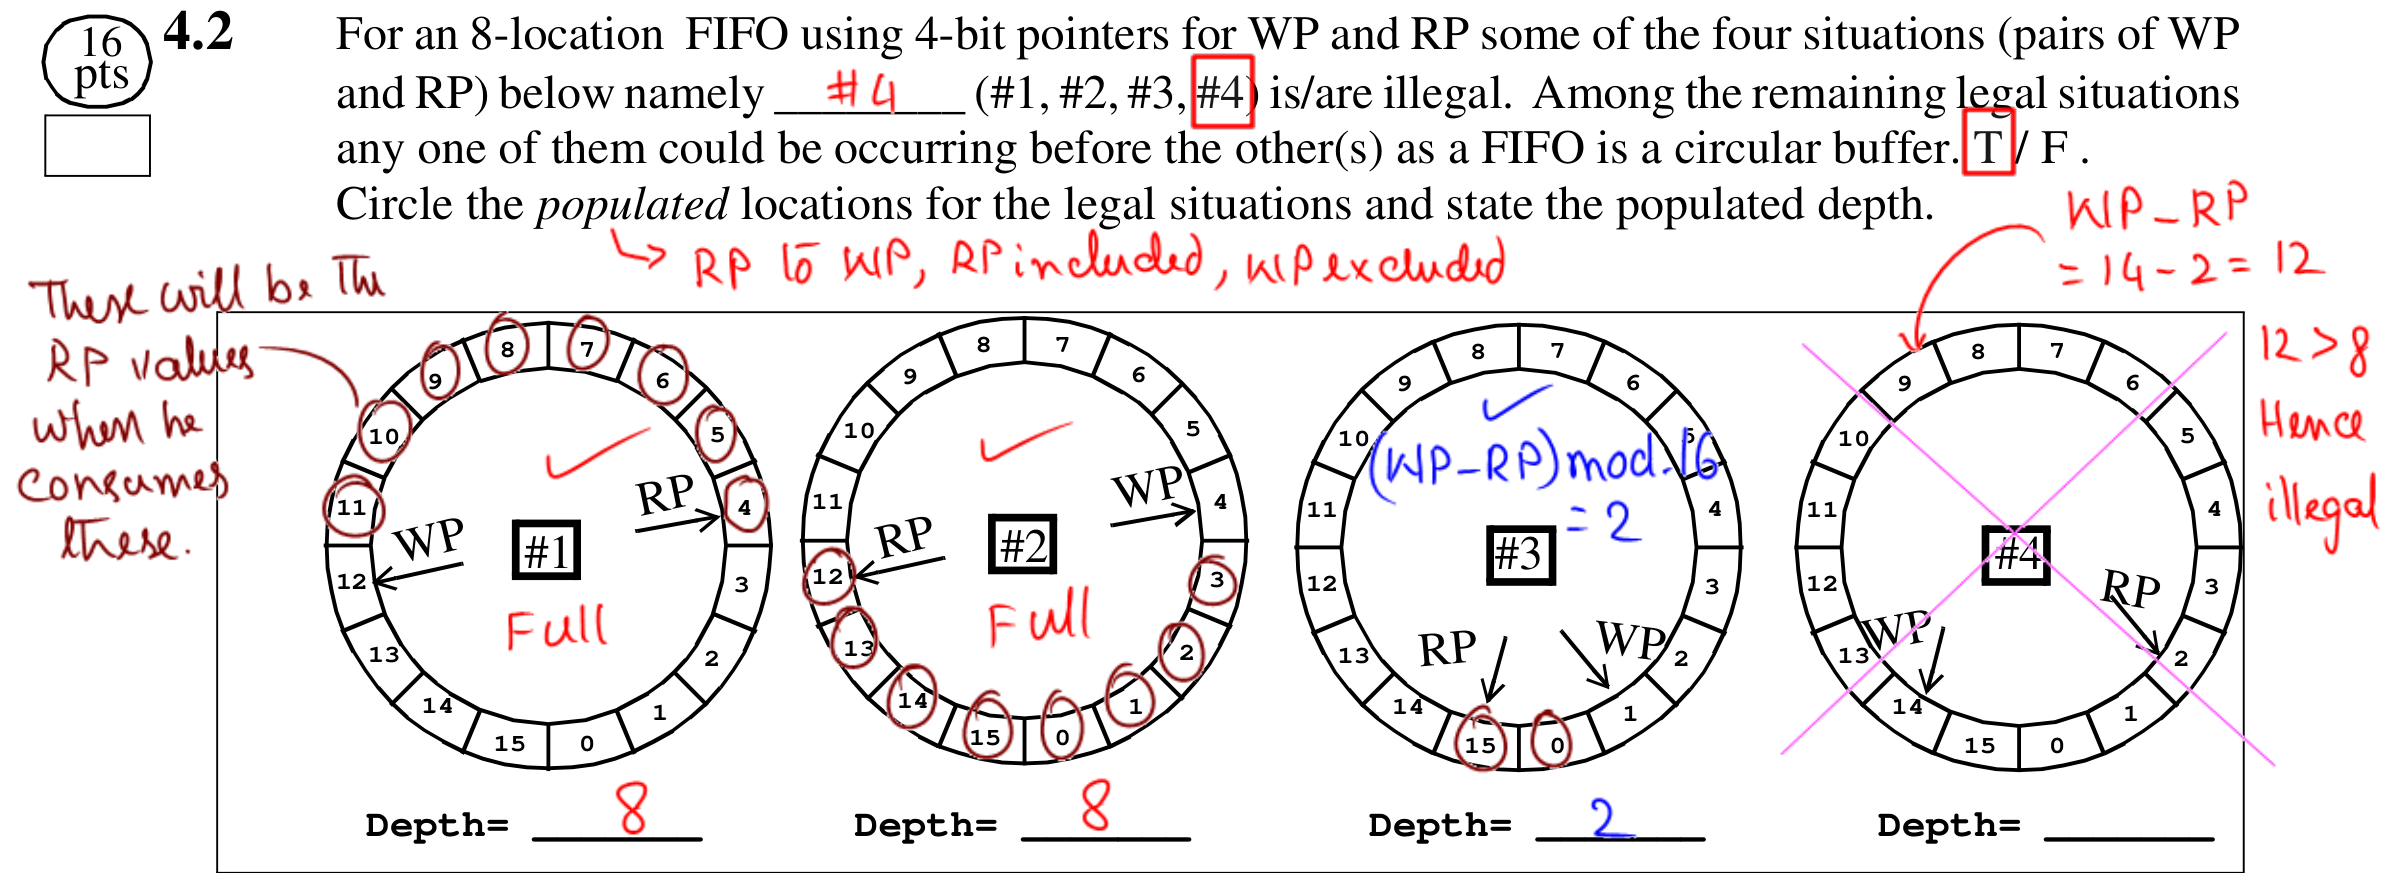 16
pts
4.2
For an 8-location FIFO using 4-bit pointers for WP and RP some of the four situations (pairs of WP
and RP) below namely #4 (#1, #2, #3, #4) is/are illegal. Among the remaining legal situations
any one of them could be occurring before the other(s) as a FIFO is a circular buffer. T / F .
Circle the populated locations for the legal situations and state the populated depth.
RP to WP, RP included, WP excluded
WP - RP
= 14 - 2 = 12
12 > 8
Hence
illegal
These will be the
RP values
when he
consumes
these.
8 7
9 6
10 5
11 4
12 3
13 2
14 1
15 0
RP
WP
#1
Full
Depth= 8
8 7
9 6
10 5
11 4
12 3
13 2
14 1
15 0
WP
RP
#2
Full
Depth= 8
8 7
9 6
10 5
11 4
12 3
13 2
14 1
15 0
(WP-RP) mod-16
= 2
#3
RP
WP
Depth= 2
8 7
9 6
10 5
11 4
12 3
13 2
14 1
15 0
#4
RP
WP
Depth=